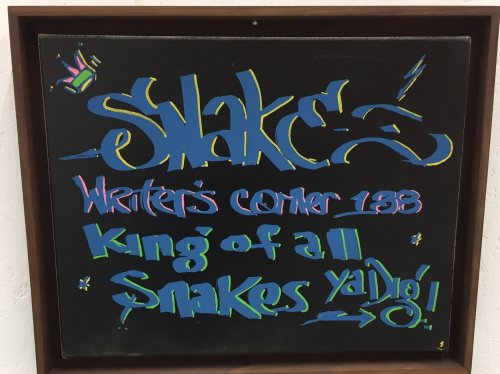 SNAKE
Writer's corner 188
King of all
Snakes ya Dig!